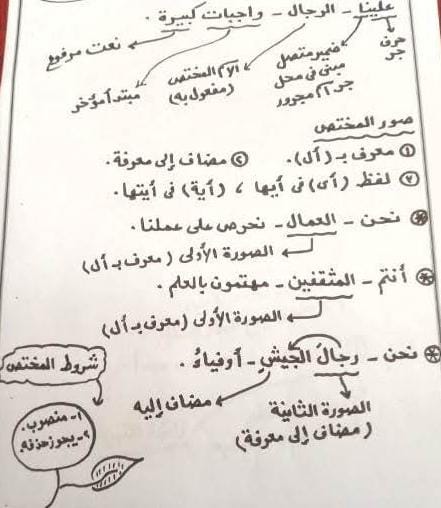 علينا - الرجال - واجبات كبيرة.
حرف جر
ضمير متصل مبنى فى محل جر اسم مجرور
الاسم المختص (مفعول به)
مبتدأ مؤخر
نعت مرفوع
صور المختص
① معرف بـ (أل). ② مضاف إلى معرفة.
③ لفظ (أى) فى أيها ، (أية) فى أيتها.
* نحن - العمال - نحرص على عملنا.
الصورة الأولى (معرف بـ أل)
* أنتم - المثقفين - مهتمون بالعلم.
الصورة الأولى (معرف بـ أل)
* نحن - رجال الجيش - أوفياء.
مضاف إليه
الصورة الثانية
(مضاف إلى معرفة)
شروط المختص
١- منصوب.
٢- يجوز حذفه.